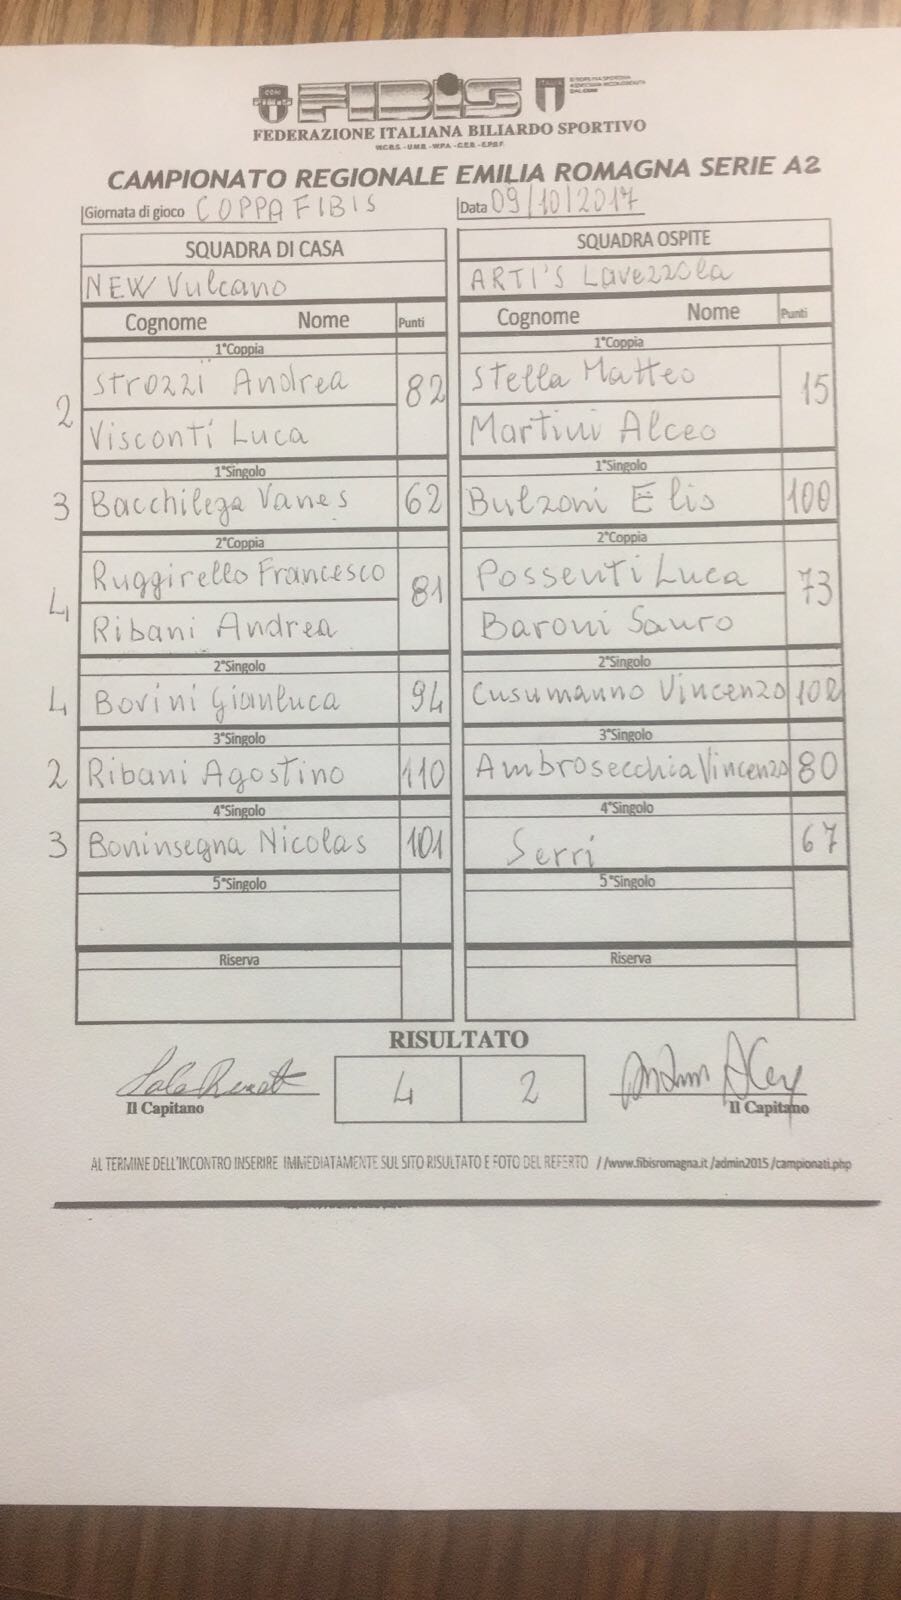 FIBiS
FEDERAZIONE ITALIANA BILIARDO SPORTIVO
W.C.B.S. - U.M.B. - W.P.A. - C.E.B. - E.P.B.F.
CAMPIONATO REGIONALE EMILIA ROMAGNA SERIE A2
Giornata di gioco COPPA FIBIS Data 09/10/2017
SQUADRA DI CASA SQUADRA OSPITE
NEW Vulcano ARTI'S Lavezzola
Cognome Nome Punti Cognome Nome Punti
1°Coppia 1°Coppia
2 Strozzi Andrea 82 Stella Matteo 15
Visconti Luca Martini Alceo
1°Singolo 1°Singolo
3 Bacchilega Vanes 62 Bulzoni Elis 100
2°Coppia 2°Coppia
4 Ruggirello Francesco 81 Possenti Luca 73
Ribani Andrea Baroni Sauro
2°Singolo 2°Singolo
4 Bovini Gianluca 94 Cusumanno Vincenzo 102
3°Singolo 3°Singolo
2 Ribani Agostino 110 Ambrosecchia Vincenzo 80
4°Singolo 4°Singolo
3 Boninsegna Nicolas 101 Serri 67
5°Singolo 5°Singolo
Riserva Riserva
RISULTATO
4 2
Il Capitano Il Capitano
AL TERMINE DELL'INCONTRO INSERIRE IMMEDIATAMENTE SUL SITO RISULTATO E FOTO DEL REFERTO //www.fibisromagna.it/admin2015/campionati.php